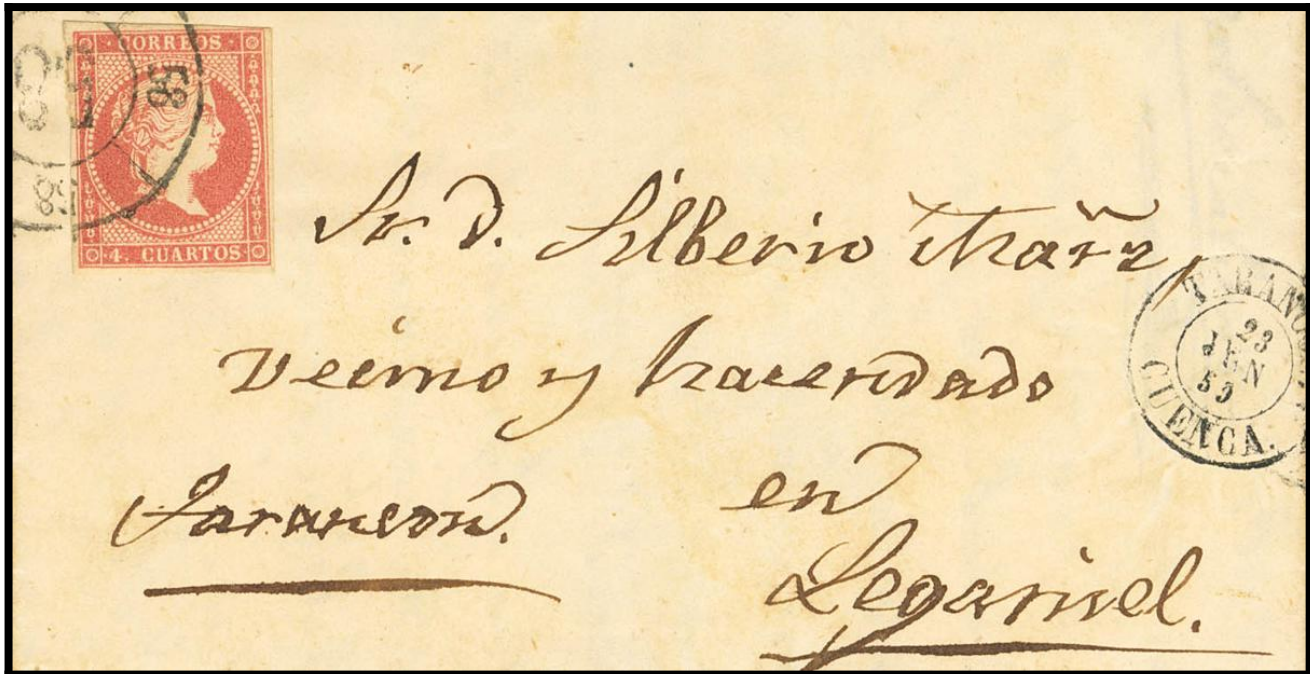 CORREOS
4. CUARTOS
Sr. D. Silberio
Vecino y hacendado
Tarancon.
en
Leganiel.
23
JUN
CUENCA.